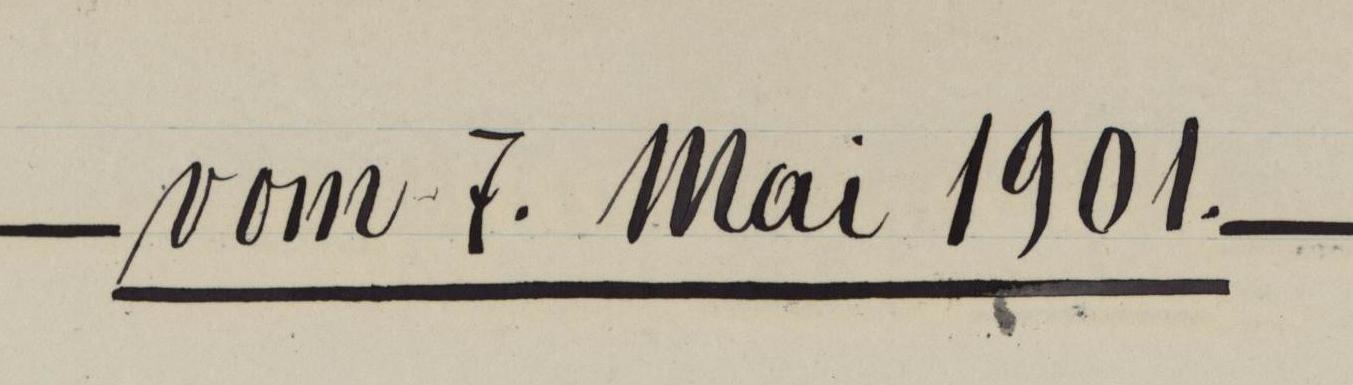 vom 7. Mai 1901.